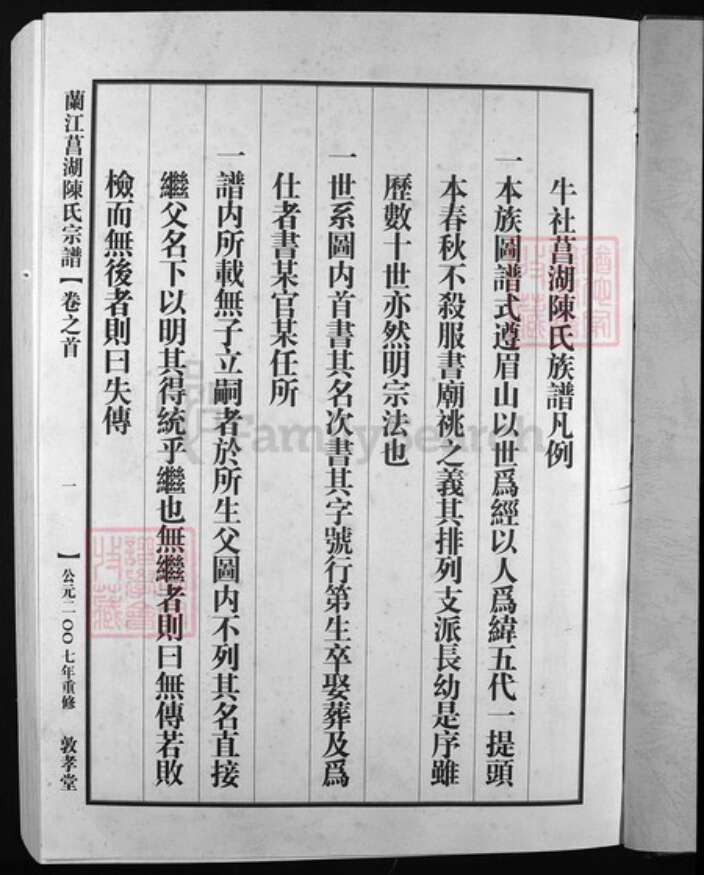 牛社菖湖陳氏族譜凡例
一本族圖譜式遵眉山以世爲經以人爲緯五代一提頭
本春秋不殺服書廟祧之義其排列支派長幼是序雖
歷數十世亦然明宗法也
一世系圖内首書其名次書其字號行第生卒娶葬及爲
仕者書某官某任所
一譜内所載無子立嗣者於所生父圖内不列其名直接
繼父名下以明其得統乎繼也無繼者則曰無傳若敗
檢而無後者則曰失傳
蘭江菖湖陳氏宗譜【卷之首 一 】公元二〇〇七年重修 敦孝堂
FamilySearch